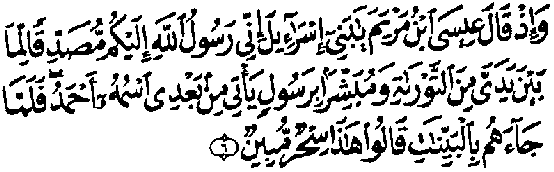 وَإِذْ قَالَ عِيسَى ٱبْنُ مَرْيَمَ يَـٰبَنِىٓ إِسْرَٰٓءِيلَ إِنِّى رَسُولُ ٱللَّهِ إِلَيْكُم مُّصَدِّقًا لِّمَا
بَيْنَ يَدَىَّ مِنَ ٱلتَّوْرَىٰةِ وَمُبَشِّرًۢا بِرَسُولٍ يَأْتِى مِنۢ بَعْدِى ٱسْمُهُۥٓ أَحْمَدُ ۖ فَلَمَّا
جَآءَهُم بِٱلْبَيِّنَـٰتِ قَالُوا۟ هَـٰذَا سِحْرٌ مُّبِينٌ ۝٦